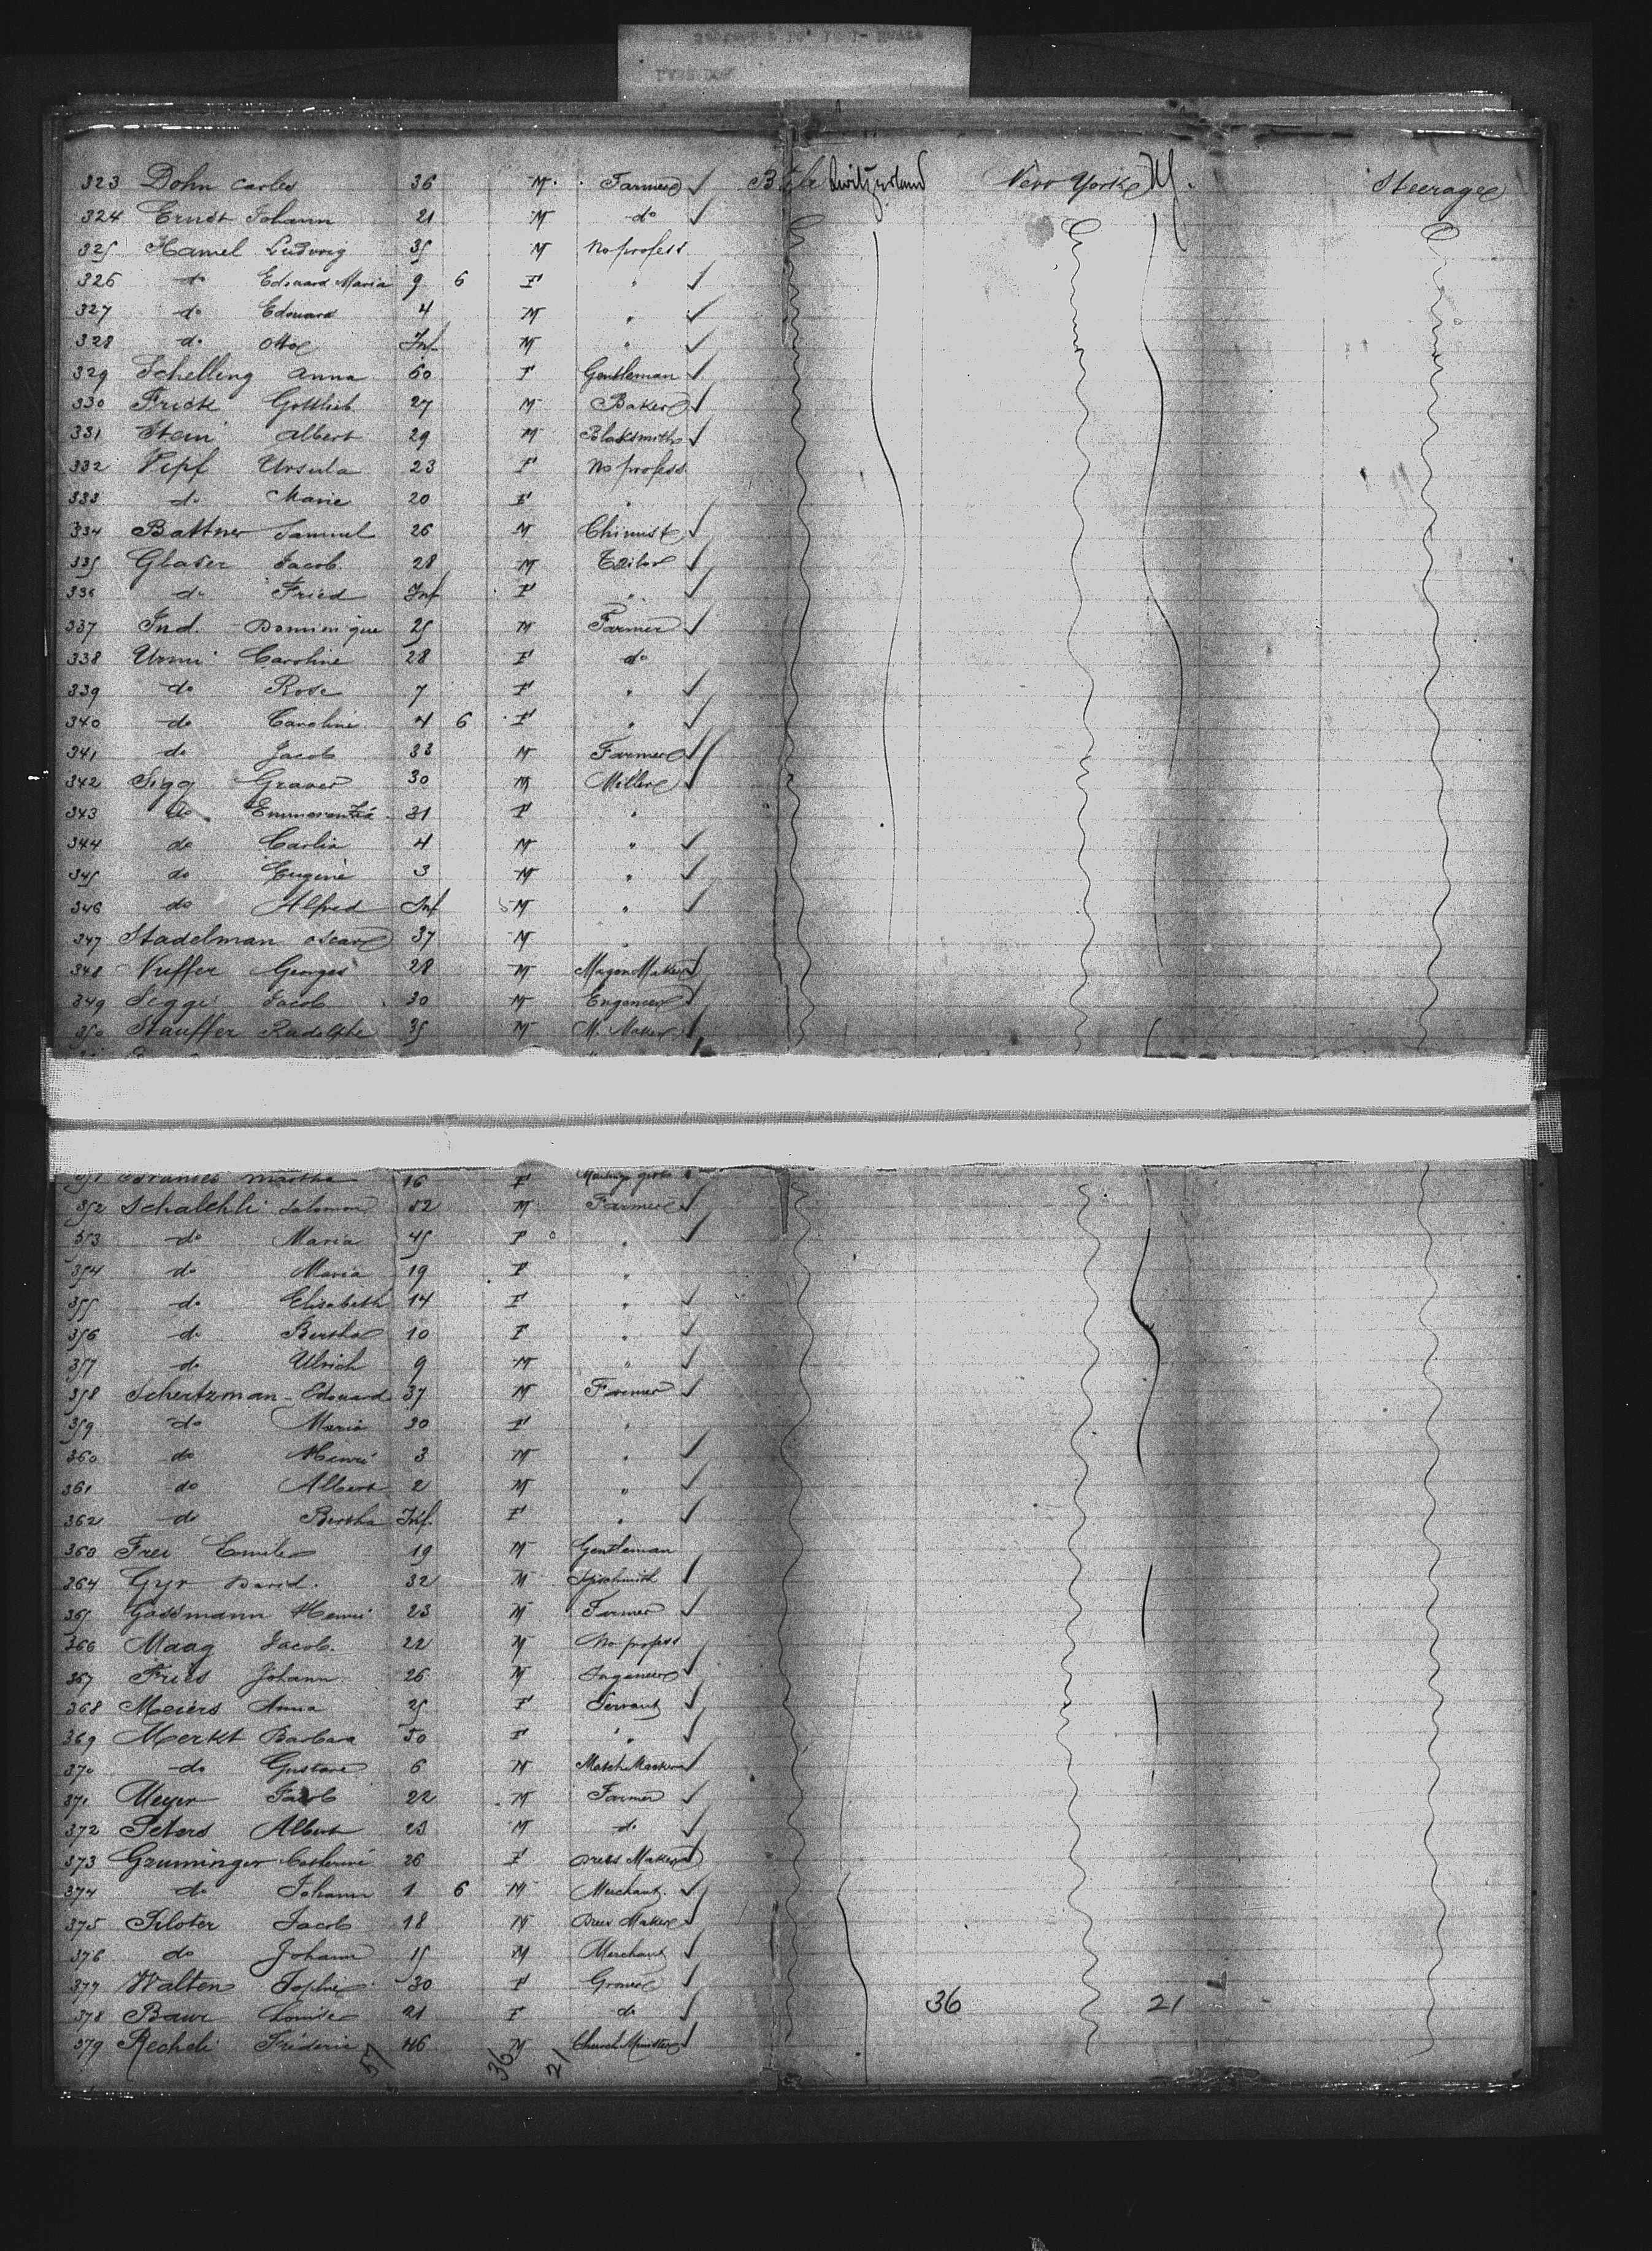 323 Dohn Carles 36 M. Farmer ✓ Bâle Switzerland New York Steerage
324 Ernst Johann 21 M do ✓
325 Hamel Ludwig 35 M No profess
326 do Edouard Maria 9 6 F " ✓
327 do Edouard 4 M " ✓
328 do Otto Inf M " ✓
329 Schelling Anna 60 F Gentleman ✓
330 Frick Gottlieb 27 M Baker ✓
331 Stein Albert 29 M Blaksmith ✓
332 Pipf Ursula 23 F No profess
333 do Marie 20 F "
334 Battner Samuel 26 M Chimist ✓
335 Glaser Jacob. 28 M Tailor ✓
336 do Fried Inf F " ✓
337 Ind. Dominique 25 M Farmer ✓
338 Urmi Caroline 28 F do
339 do Rose 7 F " ✓
340 do Caroline 4 6 F " ✓
341 do Jacob 33 M Farmer ✓
342 Sigg Graver 30 M Miller ✓
343 do Emmerentia 31 F "
344 do Carlin 4 M " ✓
345 do Eugene 3 M " ✓
346 do Alfred Inf M " ✓
347 Stadelman Oscar 37 M "
348 Nuffer Georges 28 M Magon Maker ✓
349 Seggi Jacob 30 M Engeneer ✓
350 Stauffer Radolphe 35 M M. Maker ✓
351 Martha 16 F
352 Schalchli Salomon 52 M Farmer ✓
353 do Maria 45 F " ✓
354 do Maria 19 F "
355 do Elisabeth 14 F " ✓
356 do Bertha 10 F " ✓
357 do Ulrich 9 M " ✓
358 Schertzman Edouard 37 M Farmer ✓
359 do Maria 30 F "
360 do Henri 3 M " ✓
361 do Albert 2 M " ✓
362 do Bertha Inf. F " ✓
363 Frei Emile 19 M Gentleman
364 Gyr David. 32 M ✓
365 Gassmann Henri 23 M Farmer ✓
366 Maag Jacob. 22 M No profess
367 Fries Johann 26 M Ingeneer ✓
368 Meiers Anna 25 F Servant ✓
369 Merkt Barbara 50 F " ✓
370 do Gustave 6 M ✓
371 Meyer Jacob 22 M Farmer ✓
372 Peters Albert 23 M do ✓
373 Gruminger Catherine 26 F Dress Maker ✓
374 do Johann 1 6 M Merchant. ✓
375 Piloter Jacob 18 M Dress Maker ✓
376 do Johann 15 M Merchant ✓
377 Walten Sophie 30 F Grover ✓
378 Baur Louise 21 F do ✓ 36 21
379 Recheli Frideric 46 M Church Minister ✓
57 36 21